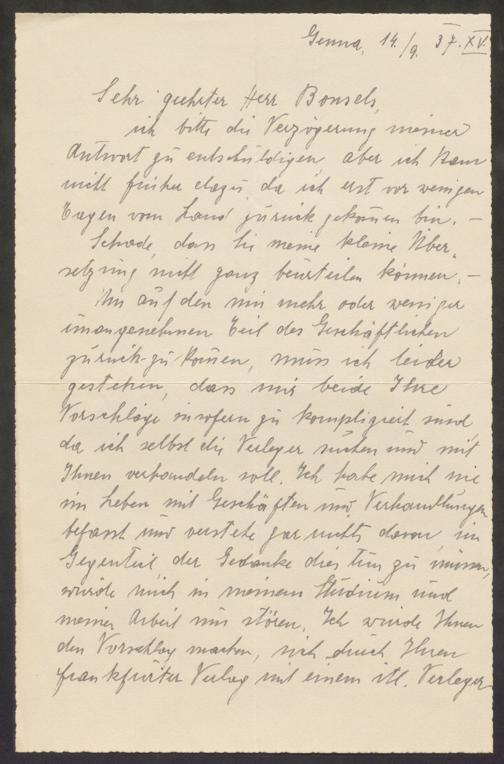 Genua, 14./9. 37. XV.
Sehr geehrter Herr Bonsels,
ich bitte die Verzögerung meiner
Antwort zu entschuldigen aber ich kam
nicht früher dazu, da ich erst vor wenigen
Tagen vom Land zurück gekommen bin. –
Schade, dass Sie meine kleine Über-
setzung nicht ganz beurteilen können. –
Um auf den mir mehr oder weniger
unangenehmen Teil des Geschäftlichen
zurück-zu kommen, muss ich leider
gestehen, dass mir beide Ihre
Vorschläge insofern zu kompliziert sind
da ich selbst die Verleger suchen und mit
Ihnen verhandeln soll. Ich habe mich nie
im Leben mit Geschäften und Verhandlungen
befasst und verstehe gar nichts davon, im
Gegenteil der Gedanke dies tun zu müssen,
würde mich in meinem Studium und
meiner Arbeit nur stören. Ich würde Ihnen
den Vorschlag machen, sich durch Ihren
frankfurter Verlag mit einem itl. Verleger